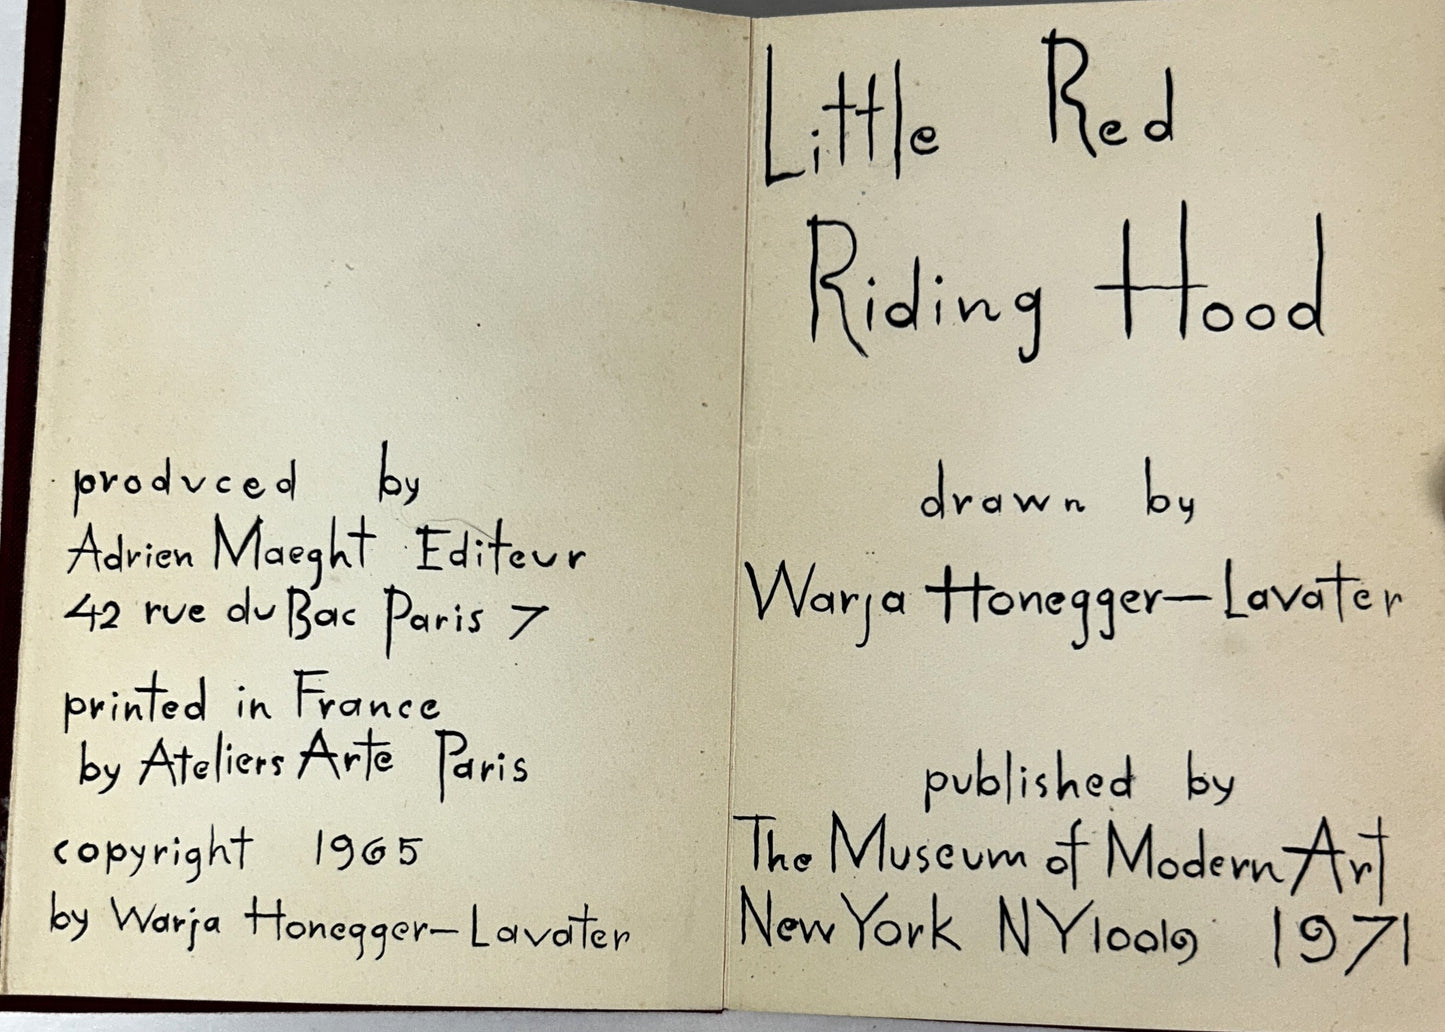 produced by
Adrien Maeght Editeur
42 rue du Bac Paris 7
printed in France
by Ateliers Arte Paris
copyright 1965
by Warja Honegger-Lavater
Little Red
Riding Hood
drawn by
Warja Honegger-Lavater
published by
The Museum of Modern Art
New York NY 10019 1971